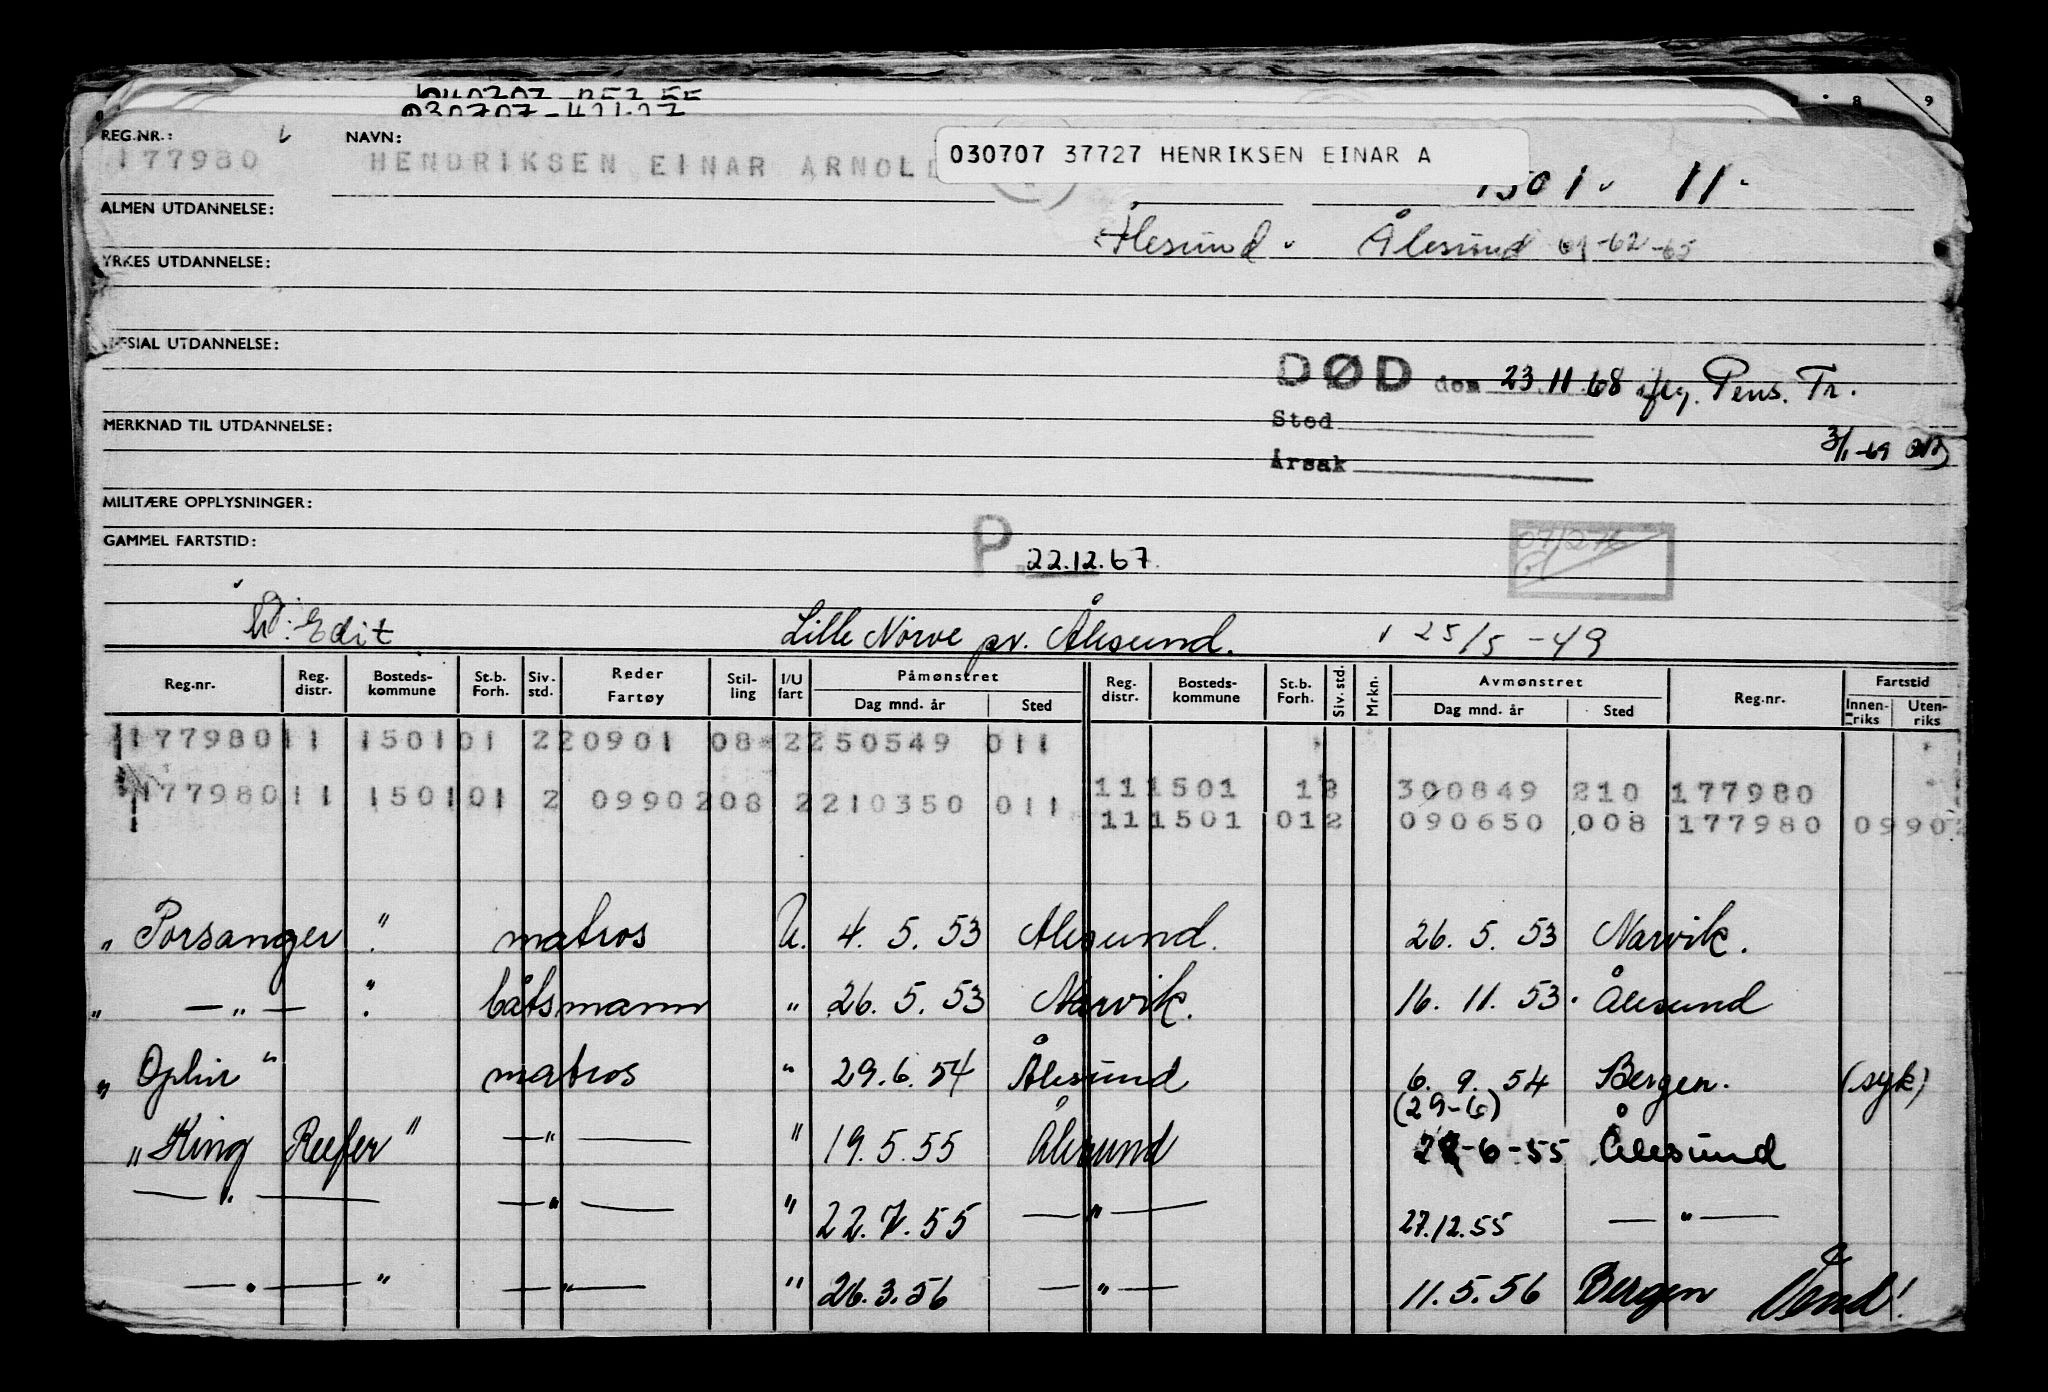 030707-421.27
REG.NR.: NAVN:
177980 HENDRIKSEN EINAR ARNOLD
030707 37727 HENRIKSEN EINAR A
1501 11
ALMEN UTDANNELSE:
Ålesund Ålesund 61-62-65
YRKES UTDANNELSE:
SPESIAL UTDANNELSE:
DØD den 23.11.68 iflg. Pens. Tr.
Sted
MERKNAD TIL UTDANNELSE:
3/1-69
Årsak
MILITÆRE OPPLYSNINGER:
GAMMEL FARTSTID:
P 22.12.67
H: Edit Lille Nørve pr. Ålesund. 25/5-49
Reg.nr. Reg. distr. Bosteds-kommune St.b. Forh. Siv. std. Reder Fartøy Stil-ling I/U fart Påmønstret Dag mnd. år Sted Reg. distr. Bosteds-kommune St.b. Forh. Siv. std. Mrkn. Avmønstret Dag mnd. år Sted Reg.nr. Fartstid Innen-riks Uten-riks
177980 11 1501 01 2 20901 08 2 250549 011
111501 12 300849 210 177980
177980 11 1501 01 2 09902 08 2 210350 011
111501 012 090650 008 177980 0990
„Porsanger" matros U. 4.5.53 Ålesund. 26.5.53 Narvik.
„ —„— " båtsmann " 26.5.53 Narvik. 16.11.53. Ålesund
„Ophir" matros " 29.6.54 Ålesund 6.9.54 Bergen. (syk)
(29-6)
„King Reefer" —"— " 19.5.55 Ålesund -6-55 Ålesund
—"— —"— " 22.7.55 —"— 27.12.55 —"—
—"— " —"— " 26.3.56 —"— 11.5.56 Bergen Vend!